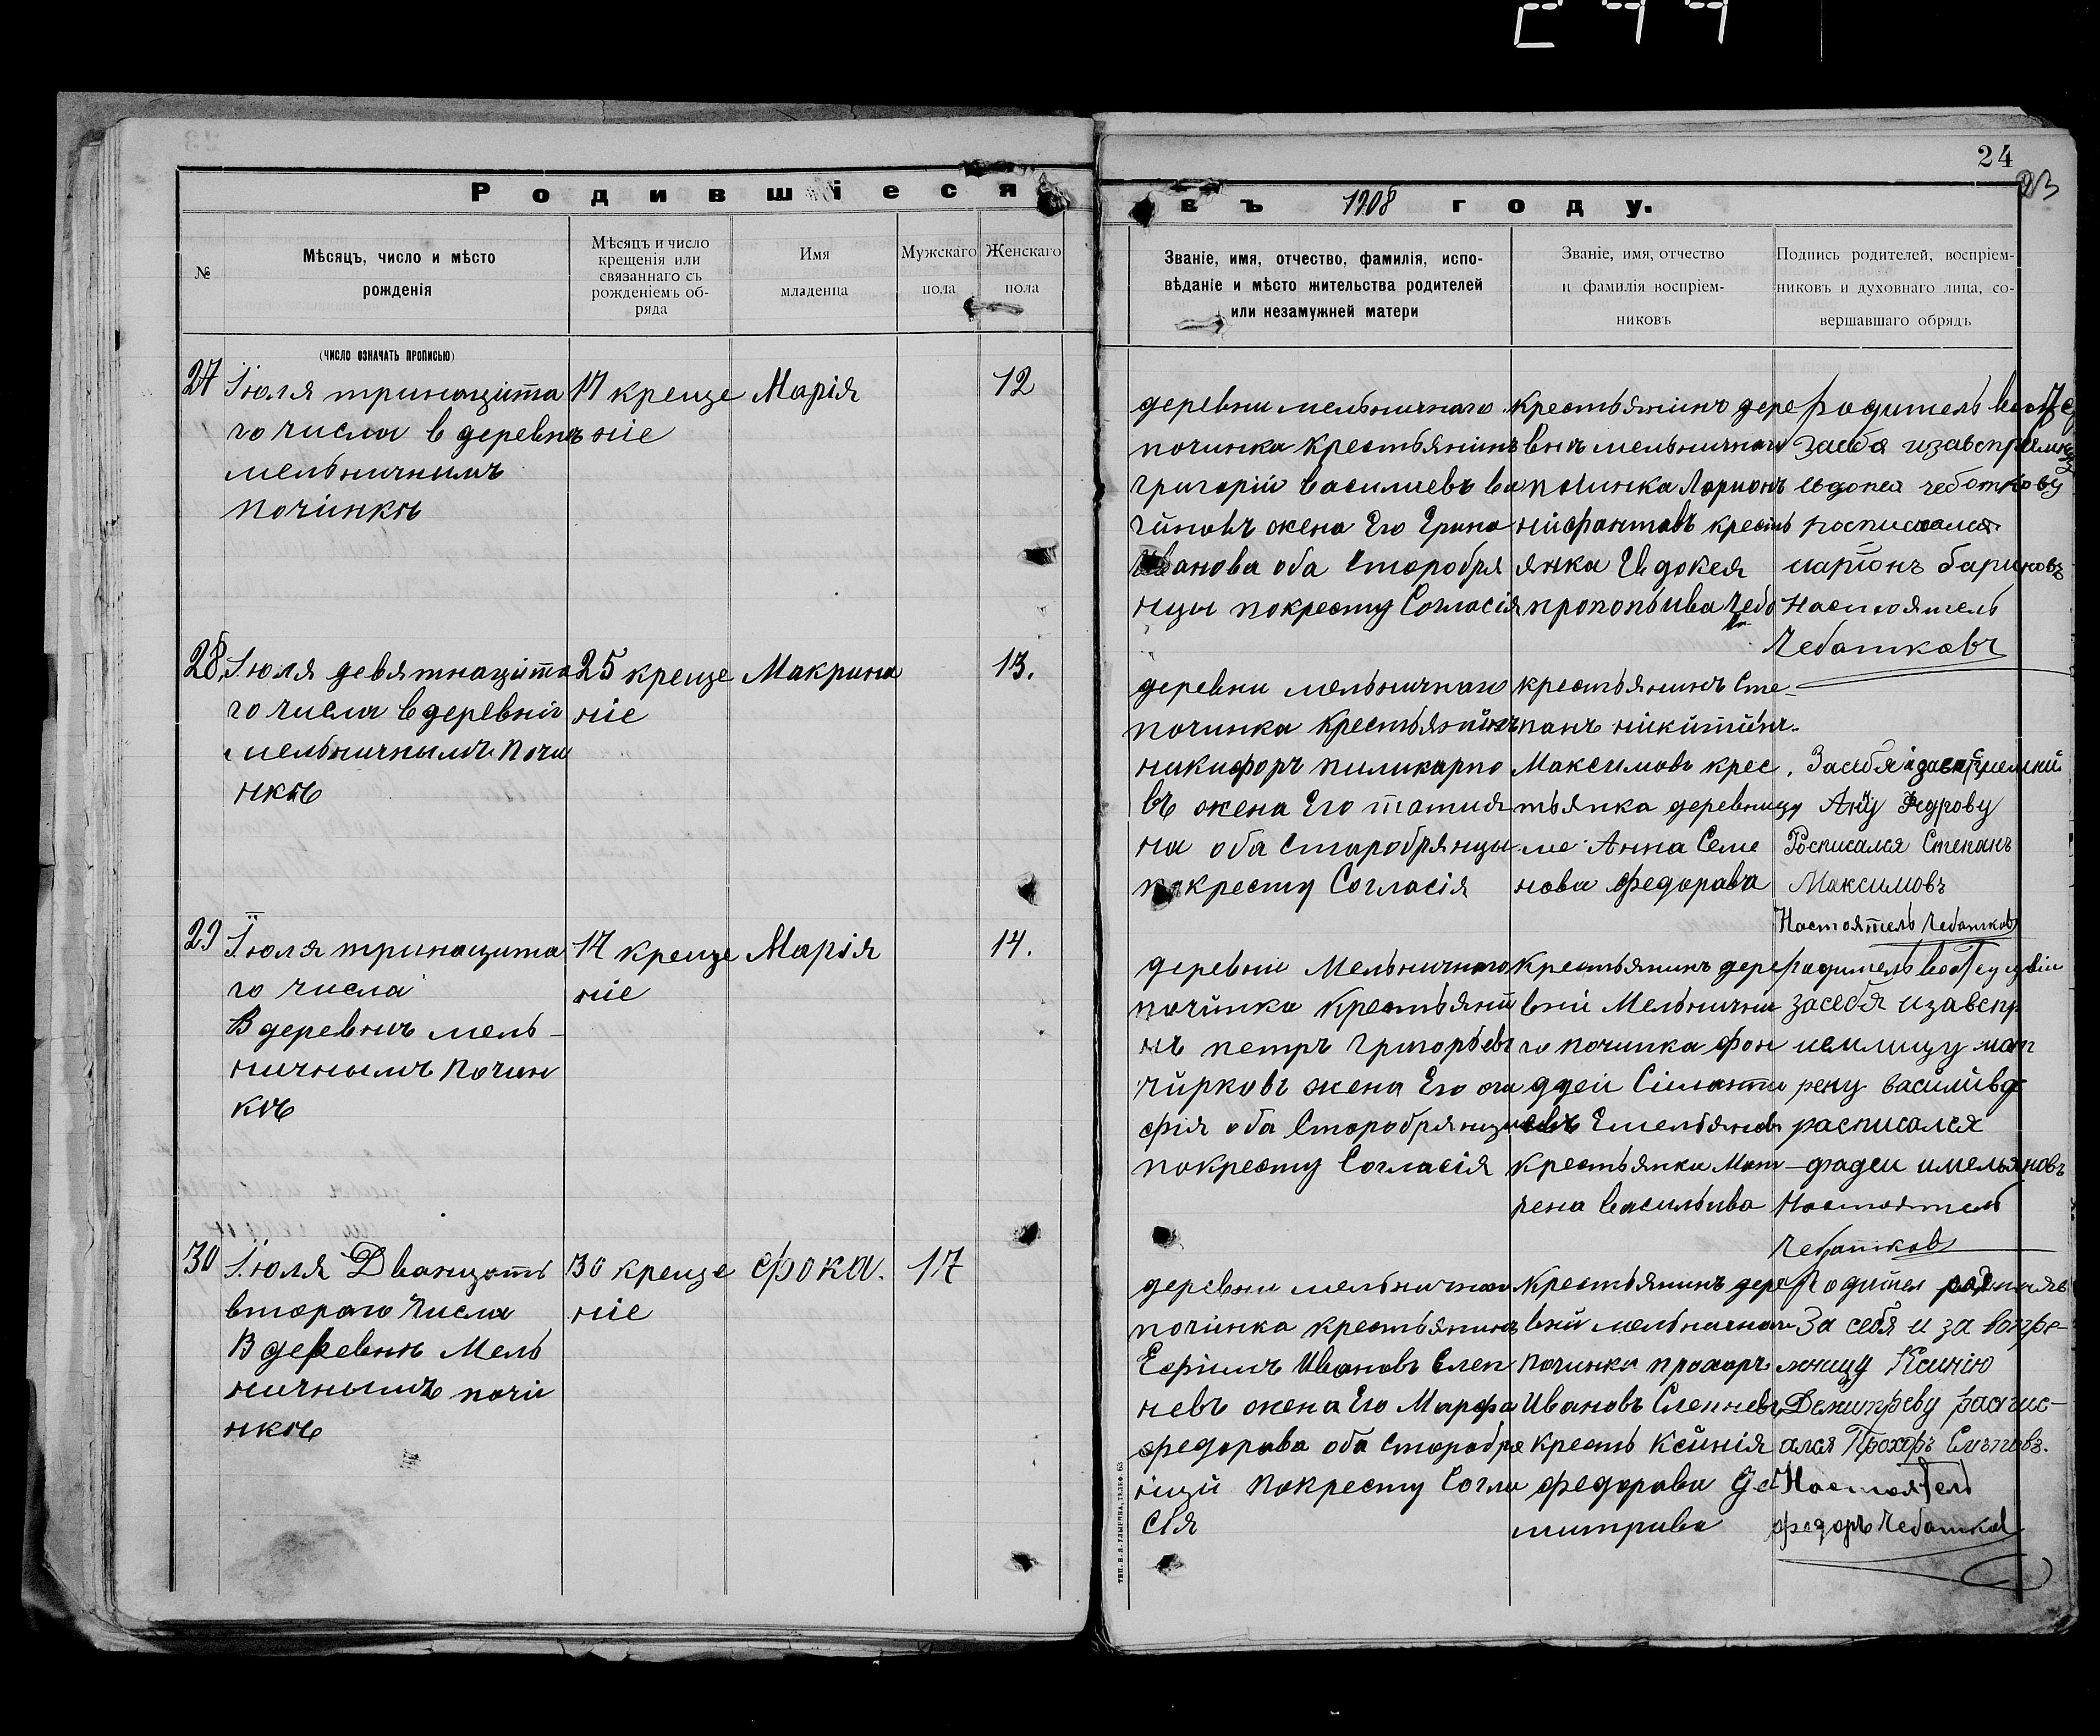 24
23
Родившіеся
въ 1908 году.
№
Мѣсяцъ, число и мѣсто
рожденія
(число означать прописью)
Мѣсяцъ и число
крещенія или
связаннаго съ
рожденіемъ об-
ряда
Имя
младенца
Мужскаго
пола
Женскаго
пола
Званіе, имя, отчество, фамилія, испо-
вѣданіе и мѣсто жительства родителей
или незамужней матери
Званіе, имя, отчество
и фамилія воспріем-
никовъ
Подпись родителей, воспріем-
никовъ и духовнаго лица, со-
вершавшаго обрядъ
27
Іюля тринацита
го числа в деревнѣ
мельничнымъ
починкѣ
17 креще
ніе
Марія
12
деревни мельничнаго
починка крестьянинъ
григорій василиевъ ва
гиновъ жена Его Ерина
Иванова оба Старобря
нцы покресту Согласія
крестьянинъ дере
внѣ мельничнаго
починка Ларионъ
нифантовъ кресть
янка Евдокея
прокопьива Чебо
родитель
засебя
чеботкову
ларіонъ бариновъ
Настоятель
Чебатковъ
28.
Іюля девятнацита
го числа в деревніи
мельничнымъ почи
нкѣ
25 креще
ніе
Макрина
13.
деревни мельничнаго
починка крестьянинъ
никифоръ пиликарпо
въ жена Его татия
на оба старобрянцы
покресту Согласія
крестьянинъ Сте-
панъ никитинъ
Максимовъ крес
тьянка деревни
Анна Семе
нова федорава
Засебя
Росписался Степанъ
Максимовъ
Настоятель Чебатков
29
Іюля тринацита
го числа
В деревнѣ мель-
ничнымъ почин
кѣ
17 креще
ніе
Марія
14.
деревни Мельничнаго
починка крестьяни
нъ петръ григорьевъ
чирковъ жена Его ага
фія оба Старобрянцы
покресту Согласія
крестьянинъ дере
вни Мельнични
го починка фон
ддеи Силанти
евъ Емельяновъ
крестьянка Мат
рена васильива
засебя изавспр
иемлицу мат
рену
расписался
фадеи имельяновъ
Настоятель
Чебатков
30
Іюля Дванцать
втораго числа
В деревнѣ Мель
ничнымъ почи
нкѣ
30 креще
ніе
фока.
17
деревни мельничнаго
починка крестьянинъ
Ефимъ Ивановъ Слеп
невъ жена Его Марфа
федорава оба старобря
нци покресту Согла
сія
Крестьянинъ дере
вни мельничнаго
починка прохоръ
Ивановъ Слепневъ
кресть Ксинія
федорава Де
митрива
За себя и за вопре-
мницу Ксинію
Демитреву распис-
ался Прохоръ
Настоятель
федоръ Чебатков